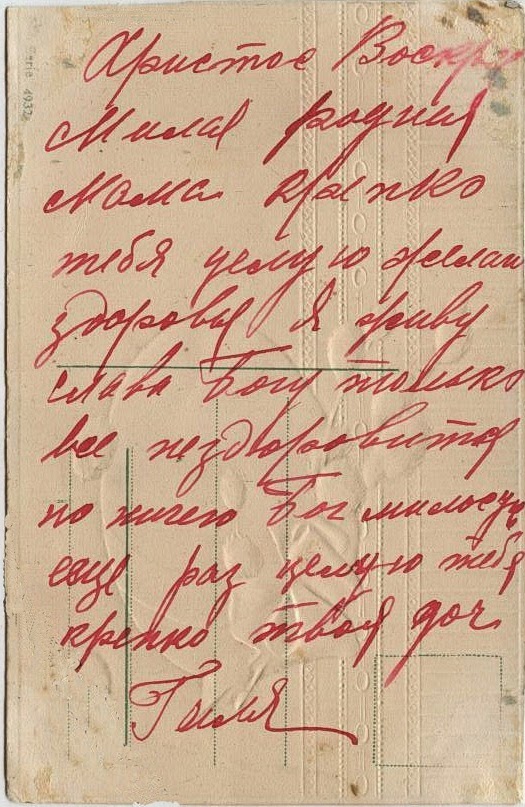 Христос Воскр
Милая родная
мама крепко
тебя целую желаю
здоровья я живу
слава Богу только
все нездоровится
но ничего Бог милосер
еще раз целую тебя
крепко твоя доч
Галя